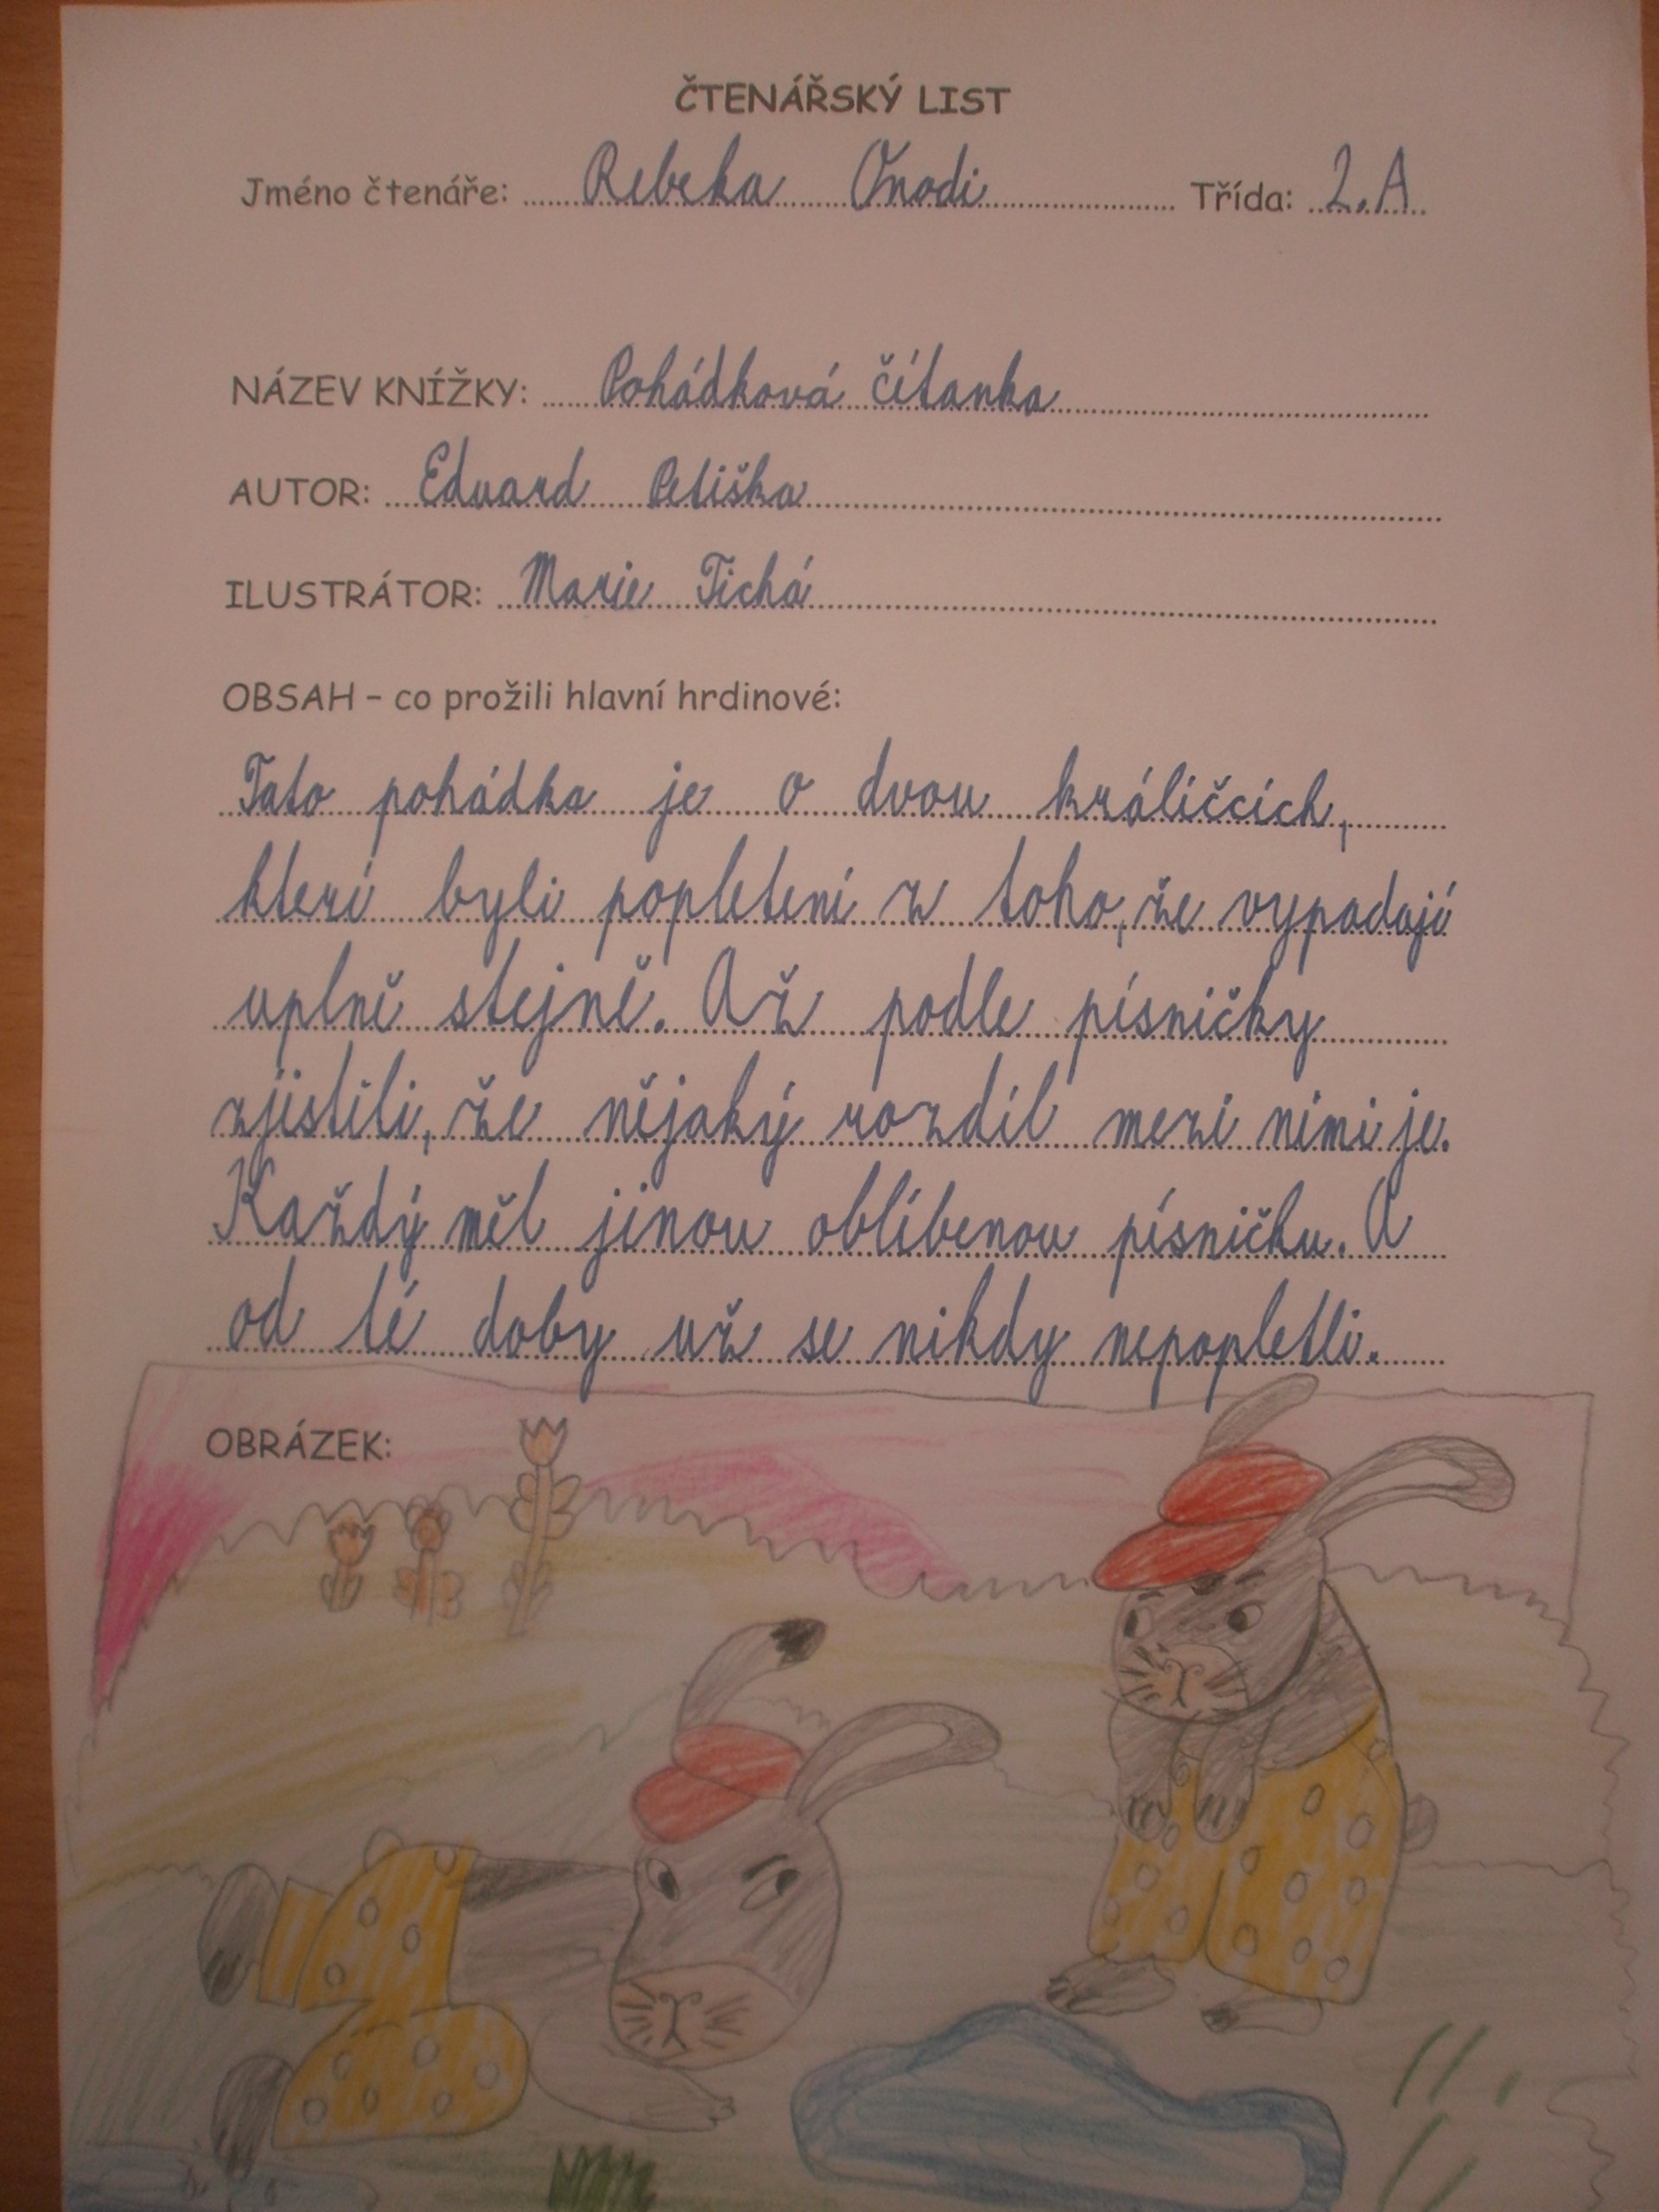 ČTENÁŘSKÝ LIST
Jméno čtenáře: Rebeka Onodi Třída: 2.A
NÁZEV KNÍŽKY: Pohádková čítanka
AUTOR: Eduard Petiška
ILUSTRÁTOR: Marie Tichá
OBSAH – co prožili hlavní hrdinové:
Tato pohádka je o dvou králíčcích,
kteří byli popletení z toho, že vypadají
uplně stejně. Až podle písničky
zjistili, že nějaký rozdíl mezi nimi je.
Každý měl jinou oblíbenou písničku. A
od té doby už se nikdy nepopletli.
OBRÁZEK: